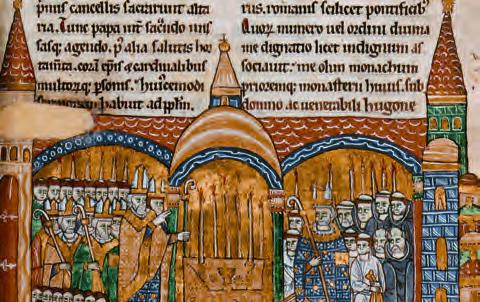 p̄mis cancellis sacrarunt alta
ria. Tunc papa int̄ sac̄ndo mis
sasq; agendo. p̄ alia salutis hor
tam̄ta. corā ep̄is & cardinalibus
multorꝫ p̄sonis. huicemodi
habuit ad pp̄lm.
rus. romanis scilicet pontificib;
Quoꝝ numero uel ordini diuina
me dignatio licet indignum as
sociauit. me olim monachum
prioremq; monasterii huius. sub
domno ac uenerabili hugone